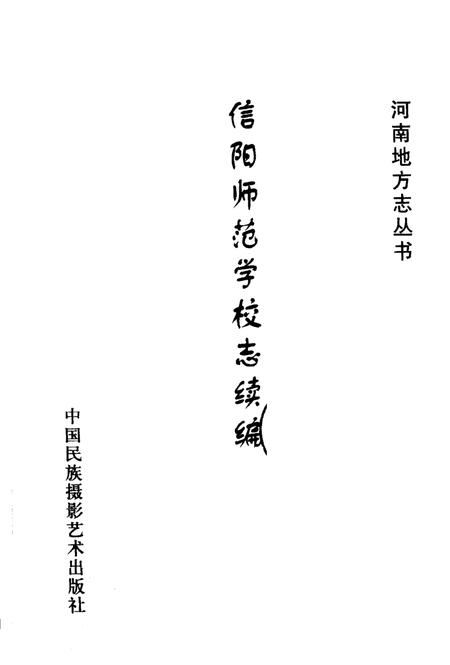 河南地方志丛书
信阳师范学校志续编
中国民族摄影艺术出版社